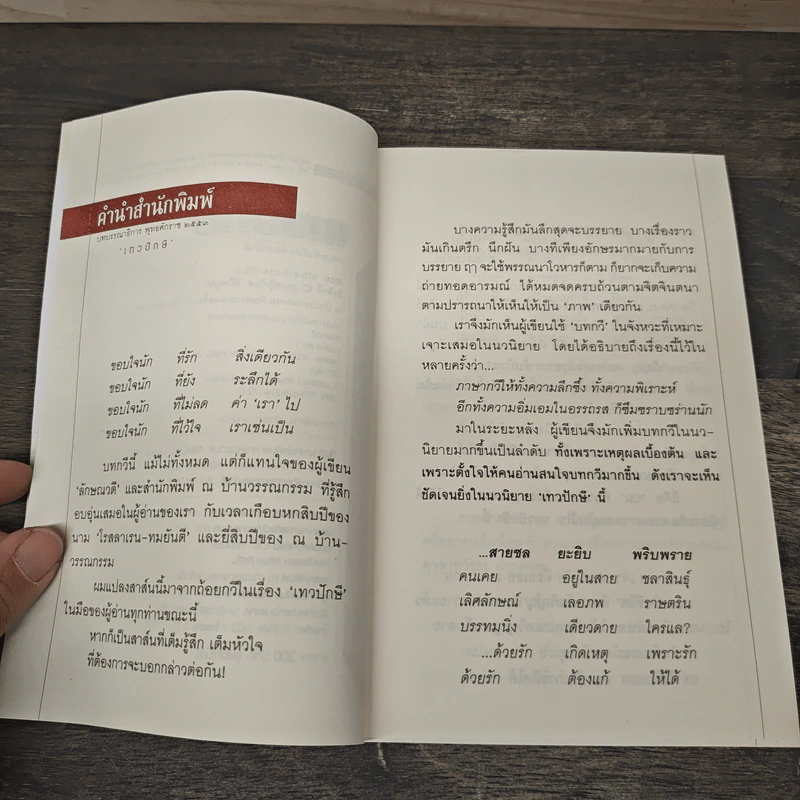 คำนำสำนักพิมพ์
บทบรรณาธิการ พุทธศักราช ๒๕๕๓
'เทวปักษี'
ขอบใจนัก ที่รัก สิ่งเดียวกัน
ขอบใจนัก ที่ยัง ระลึกได้
ขอบใจนัก ที่ไม่ลด ค่า 'เรา' ไป
ขอบใจนัก ที่ไว้ใจ เราเช่นเป็น
บทกวีนี้ แม้ไม่ทั้งหมด แต่ก็แทนใจของผู้เขียน
'ลักษณวดี' และสำนักพิมพ์ ณ บ้านวรรณกรรม ที่รู้สึก
อบอุ่นเสมอในผู้อ่านของเรา กับเวลาเกือบหกสิบปีของ
นาม 'โรสลาเรน-ทมยันตี' และยี่สิบปีของ ณ บ้าน-
วรรณกรรม
ผมแปลงสาส์นนี้มาจากถ้อยกวีในเรื่อง 'เทวปักษี'
ในมือของผู้อ่านทุกท่านขณะนี้
หากก็เป็นสาส์นที่เต็มรู้สึก เต็มหัวใจ
ที่ต้องการจะบอกกล่าวต่อกัน!
บางความรู้สึกมันลึกสุดจะบรรยาย บางเรื่องราว
มันเกินตรึก นึกฝัน บางทีเพียงอักษรมากมายกับการ
บรรยาย ฤๅ จะใช้พรรณนาโวหารก็ตาม ก็ยากจะเก็บความ
ถ่ายทอดอารมณ์ ได้หมดจดครบถ้วนตามจิตจินตนา
ตามปรารถนาให้เห็นให้เป็น 'ภาพ' เดียวกัน
เราจึงมักเห็นผู้เขียนใช้ 'บทกวี' ในจังหวะที่เหมาะ
เจาะเสมอในนวนิยาย โดยได้อธิบายถึงเรื่องนี้ไว้ใน
หลายครั้งว่า...
ภาษากวีให้ทั้งความลึกซึ้ง ทั้งความพิเราะห์
อีกทั้งความอิ่มเอมในอรรถรส ก็ซึมซราบซร่านนัก
มาในระยะหลัง ผู้เขียนจึงมักเพิ่มบทกวีในนว-
นิยายมากขึ้นเป็นลำดับ ทั้งเพราะเหตุผลเบื้องต้น และ
เพราะตั้งใจให้คนอ่านสนใจบทกวีมากขึ้น ดังเราจะเห็น
ชัดเจนยิ่งในนวนิยาย 'เทวปักษี' นี้
...สายชล ยะยิบ พริบพราย
คนเคย อยู่ในสาย ชลาสินธุ์
เลิศลักษณ์ เลอภพ ราษตริน
บรรทมนิ่ง เดียวดาย ใครแล?
...ด้วยรัก เกิดเหตุ เพราะรัก
ด้วยรัก ต้องแก้ ให้ได้